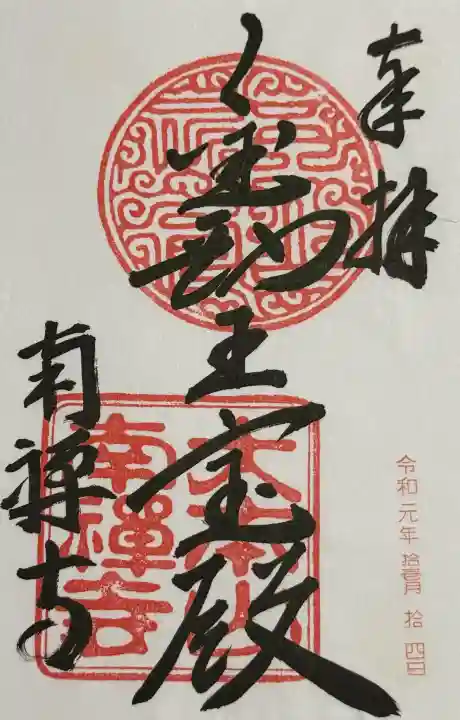 奉拝
金剛王宝殿
南禅寺
令和元年 拾壹月 拾四日
南禪寺